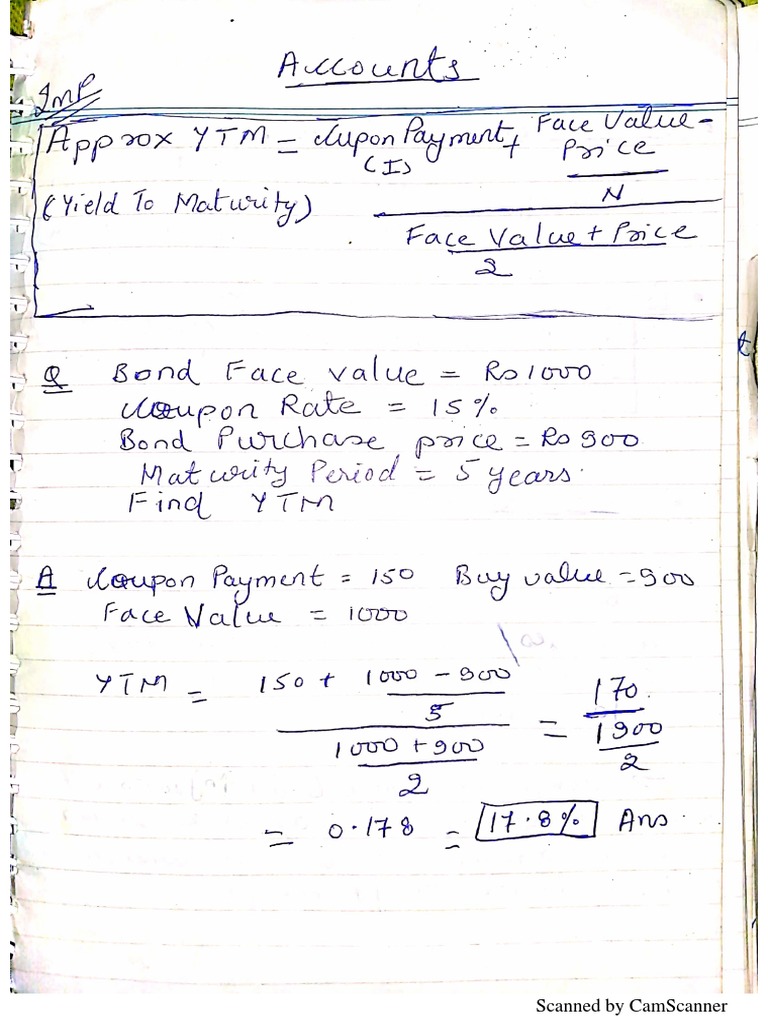 Accounts
Imp
Approx YTM = Coupon Payment + Face Value - Price
(I)
N
(Yield To Maturity)
Face Value + Price
2
Q Bond Face value = Rs 1000
Coupon Rate = 15%
Bond Purchase price = Rs 900
Maturity Period = 5 years.
Find YTM
A Coupon Payment = 150 Buy value = 900
Face Value = 1000
YTM = 150 + 1000 - 900 = 170
5 1900
1000 + 900 2
2
= 0.178 = 17.8% Ans.
Scanned by CamScanner